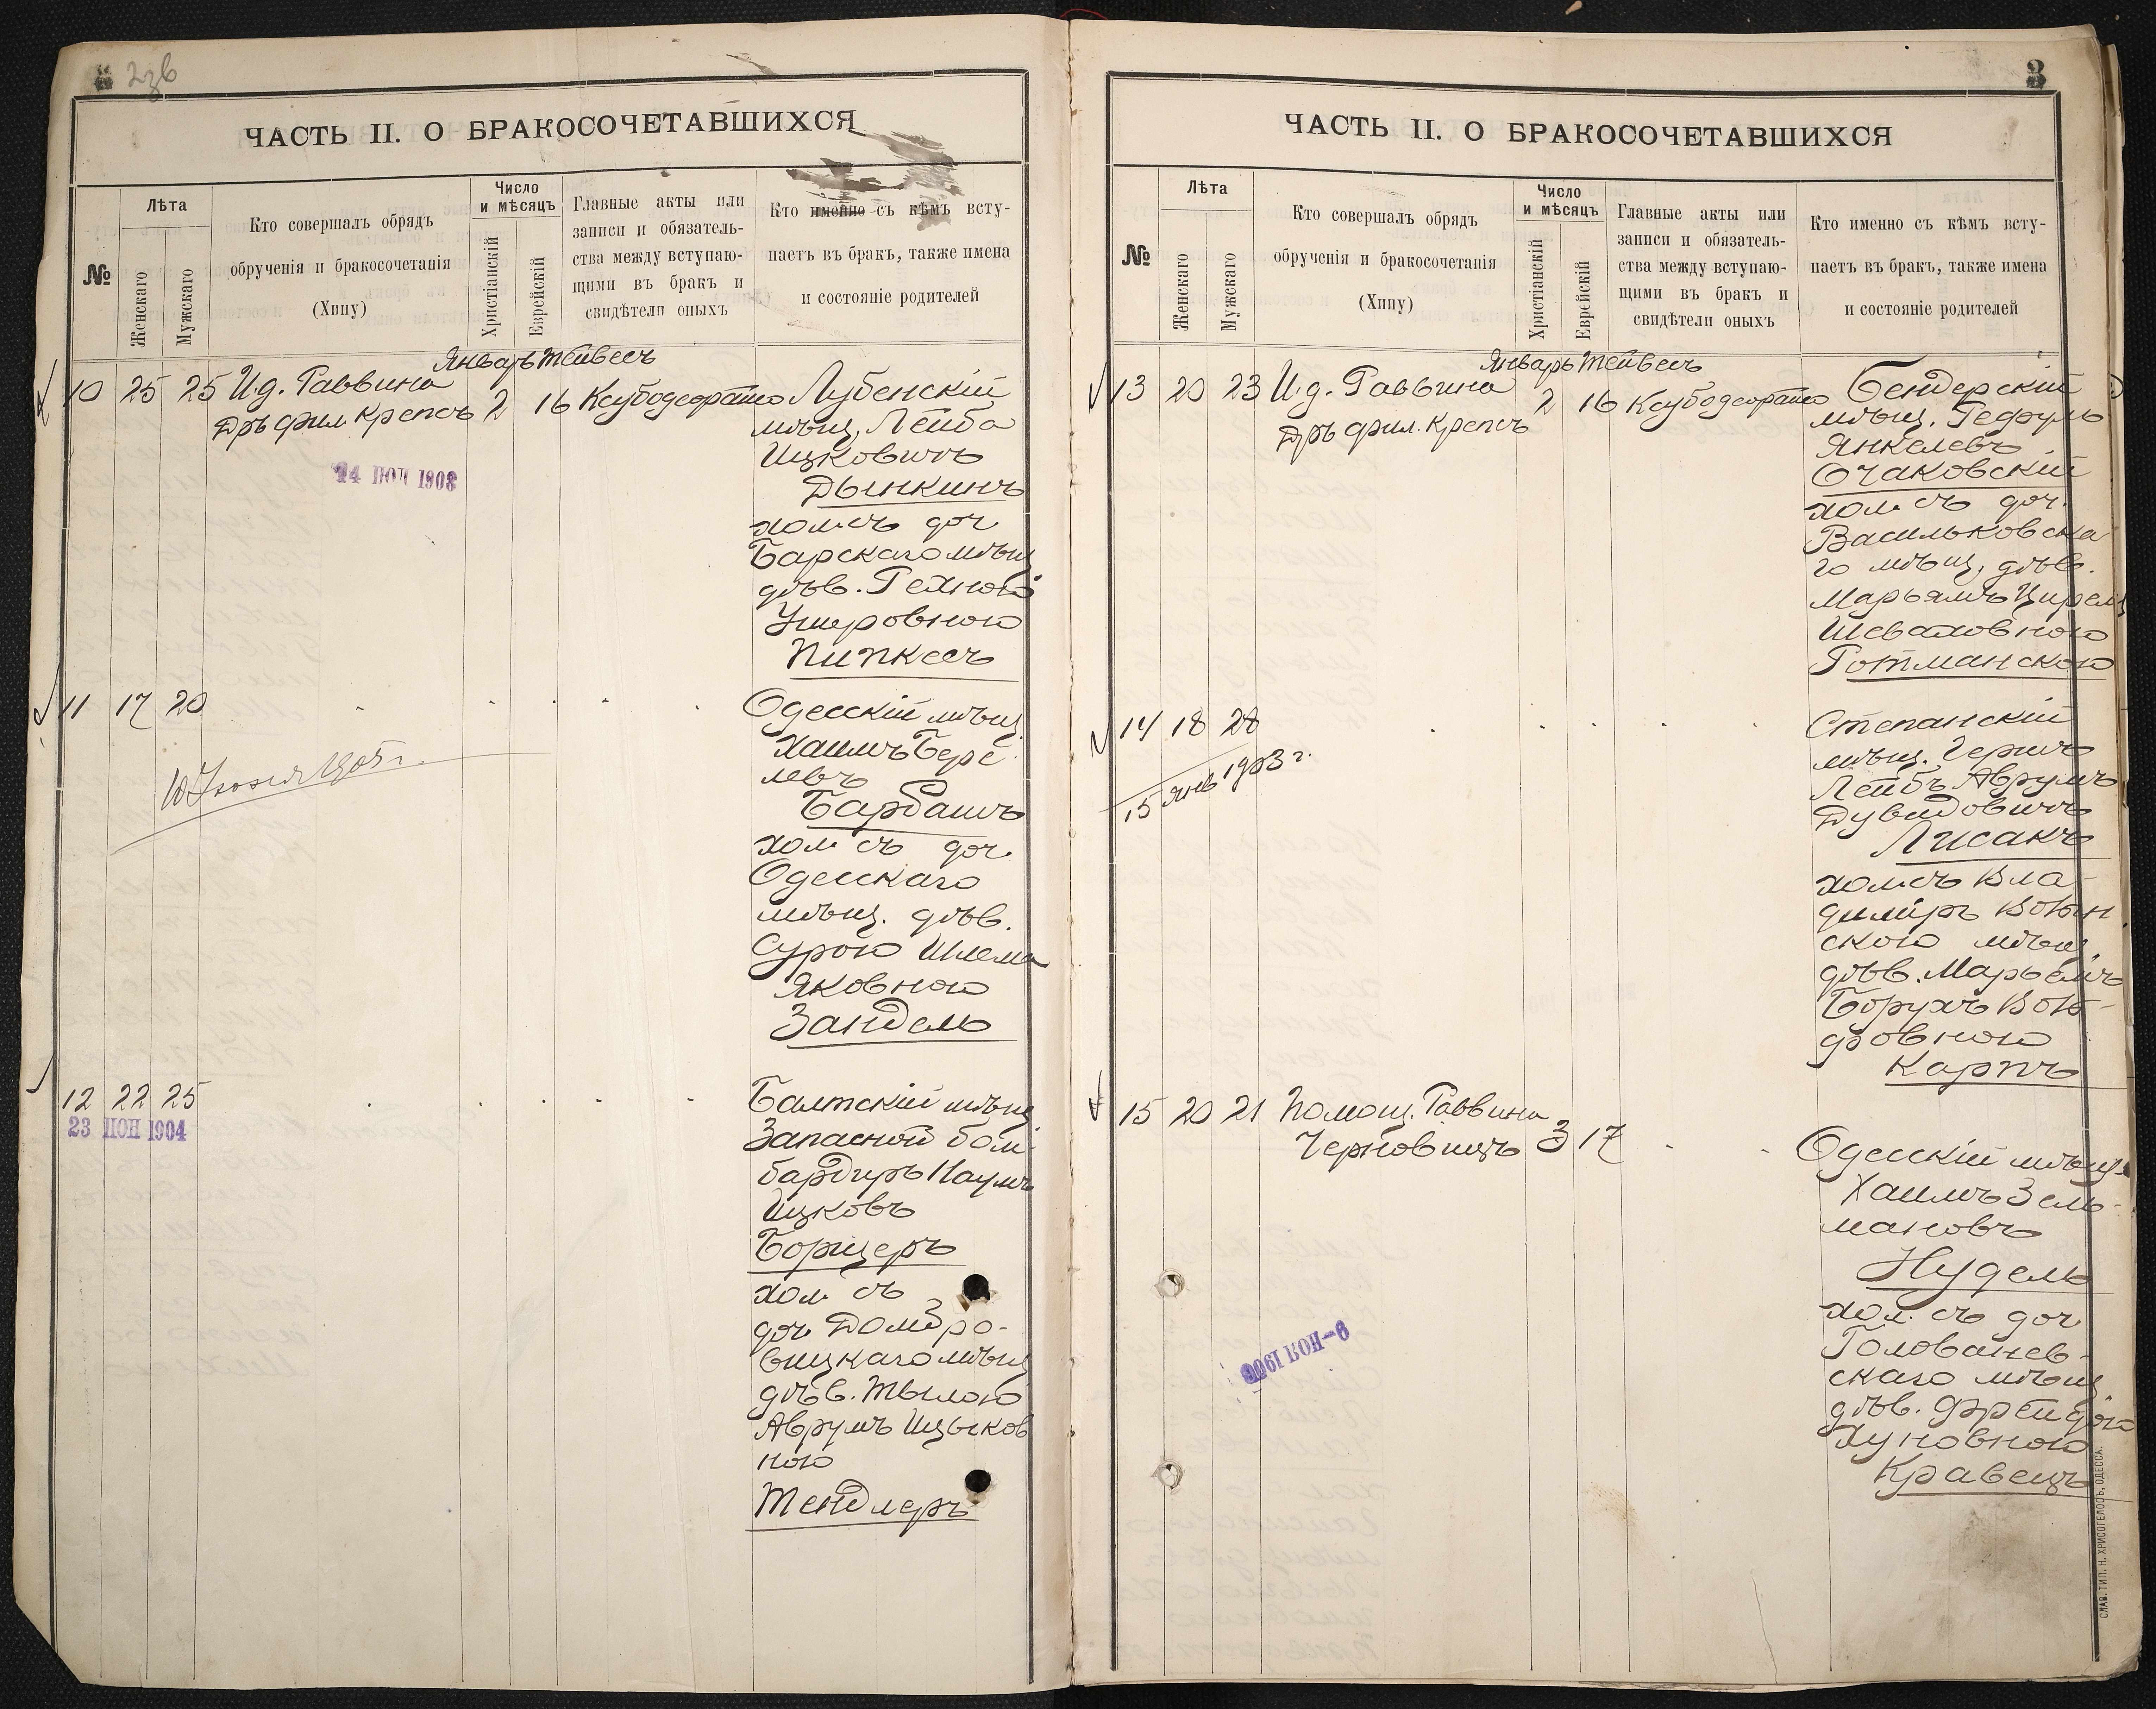 2зв
ЧАСТЬ II. О БРАКОСОЧЕТАВШИХСЯ
№
Лѣта
Женскаго
Мужскаго
Кто совершалъ обрядъ
обрученія и бракосочетанія
(Хипу)
Число
и мѣсяцъ
Христіанскій
Еврейскій
Главные акты или
записи и обязатель-
ства между вступаю-
щими въ бракъ и
свидѣтели оныхъ
Кто именно съ кѣмъ всту-
паетъ въ бракъ, также имена
и состояніе родителей
Январь Тейвесъ
10 25 25 И.д. Раввина
Дръ фил. Крепсъ 2 16 Ксубодеорато
24 НОЯ 1908
Лубенскій
мѣщ. Лейба
Ицковичъ
Дынкинъ
хол. съ доч.
Барскаго мѣщ
дѣв. Рехною
Ушеровною
Пипкесъ
11 17 20
10 Іюня 1905 г.
Одесскій мѣщ
Хаимъ Бере
левъ
Барбашъ
хол съ доч.
Одесскаго
мѣщ. дѣв.
Сурою Шлема
Яковною
Зандель
12 22 25
23 НОЯ 1904
Балтскій мѣщ
Запасной бом
бардиръ Наумъ
Ицковъ
Борщеръ
хол съ
доч Домбро-
вицкаго мѣщ
дѣв. Тылою
Аврумъ Ицьков
ною
Тендлеръ
3
ЧАСТЬ II. О БРАКОСОЧЕТАВШИХСЯ
№
Лѣта
Женскаго
Мужскаго
Кто совершалъ обрядъ
обрученія и бракосочетанія
(Хипу)
Число
и мѣсяцъ
Христіанскій
Еврейскій
Главные акты или
записи и обязатель-
ства между вступаю-
щими въ бракъ и
свидѣтели оныхъ
Кто именно съ кѣмъ всту-
паетъ въ бракъ, также имена
и состояніе родителей
Январь Тейвесъ
13 20 23 И.д. Раввина
Дръ фил. Крепсъ 2 16 Ксубодеорато
Бендерскій
мѣщ. Гефуль
Янкелевъ
Очаковскій
хол. съ доч.
Васильковска
го мѣщ, дѣв.
Марьямъ Цирель
Шеваховною
Готманскою
14 18 28
15 янв 1903 г.
Степанскій
мѣщ. Гершъ
Лейбъ Аврумъ
Дувидовичъ
Лисакъ
хол. съ Вла-
димиръ Волын
скою мѣщ
дѣв. Марьемъ
Борухъ Воль-
фовною
Карпъ
15 20 21 Помощ. Раввина
Черновицъ 3 17
9-НОЯ 1906
Одесскій мѣщ.
Хаимъ Зель-
мановъ
Нудель
хол. съ доч
Голованев-
скаго мѣщ
дѣв. Фрейдою
Хуновною
Кравецъ
СЛАВ. ТИП. Н. ХРИСОГЕЛОСЪ, ОДЕССА.